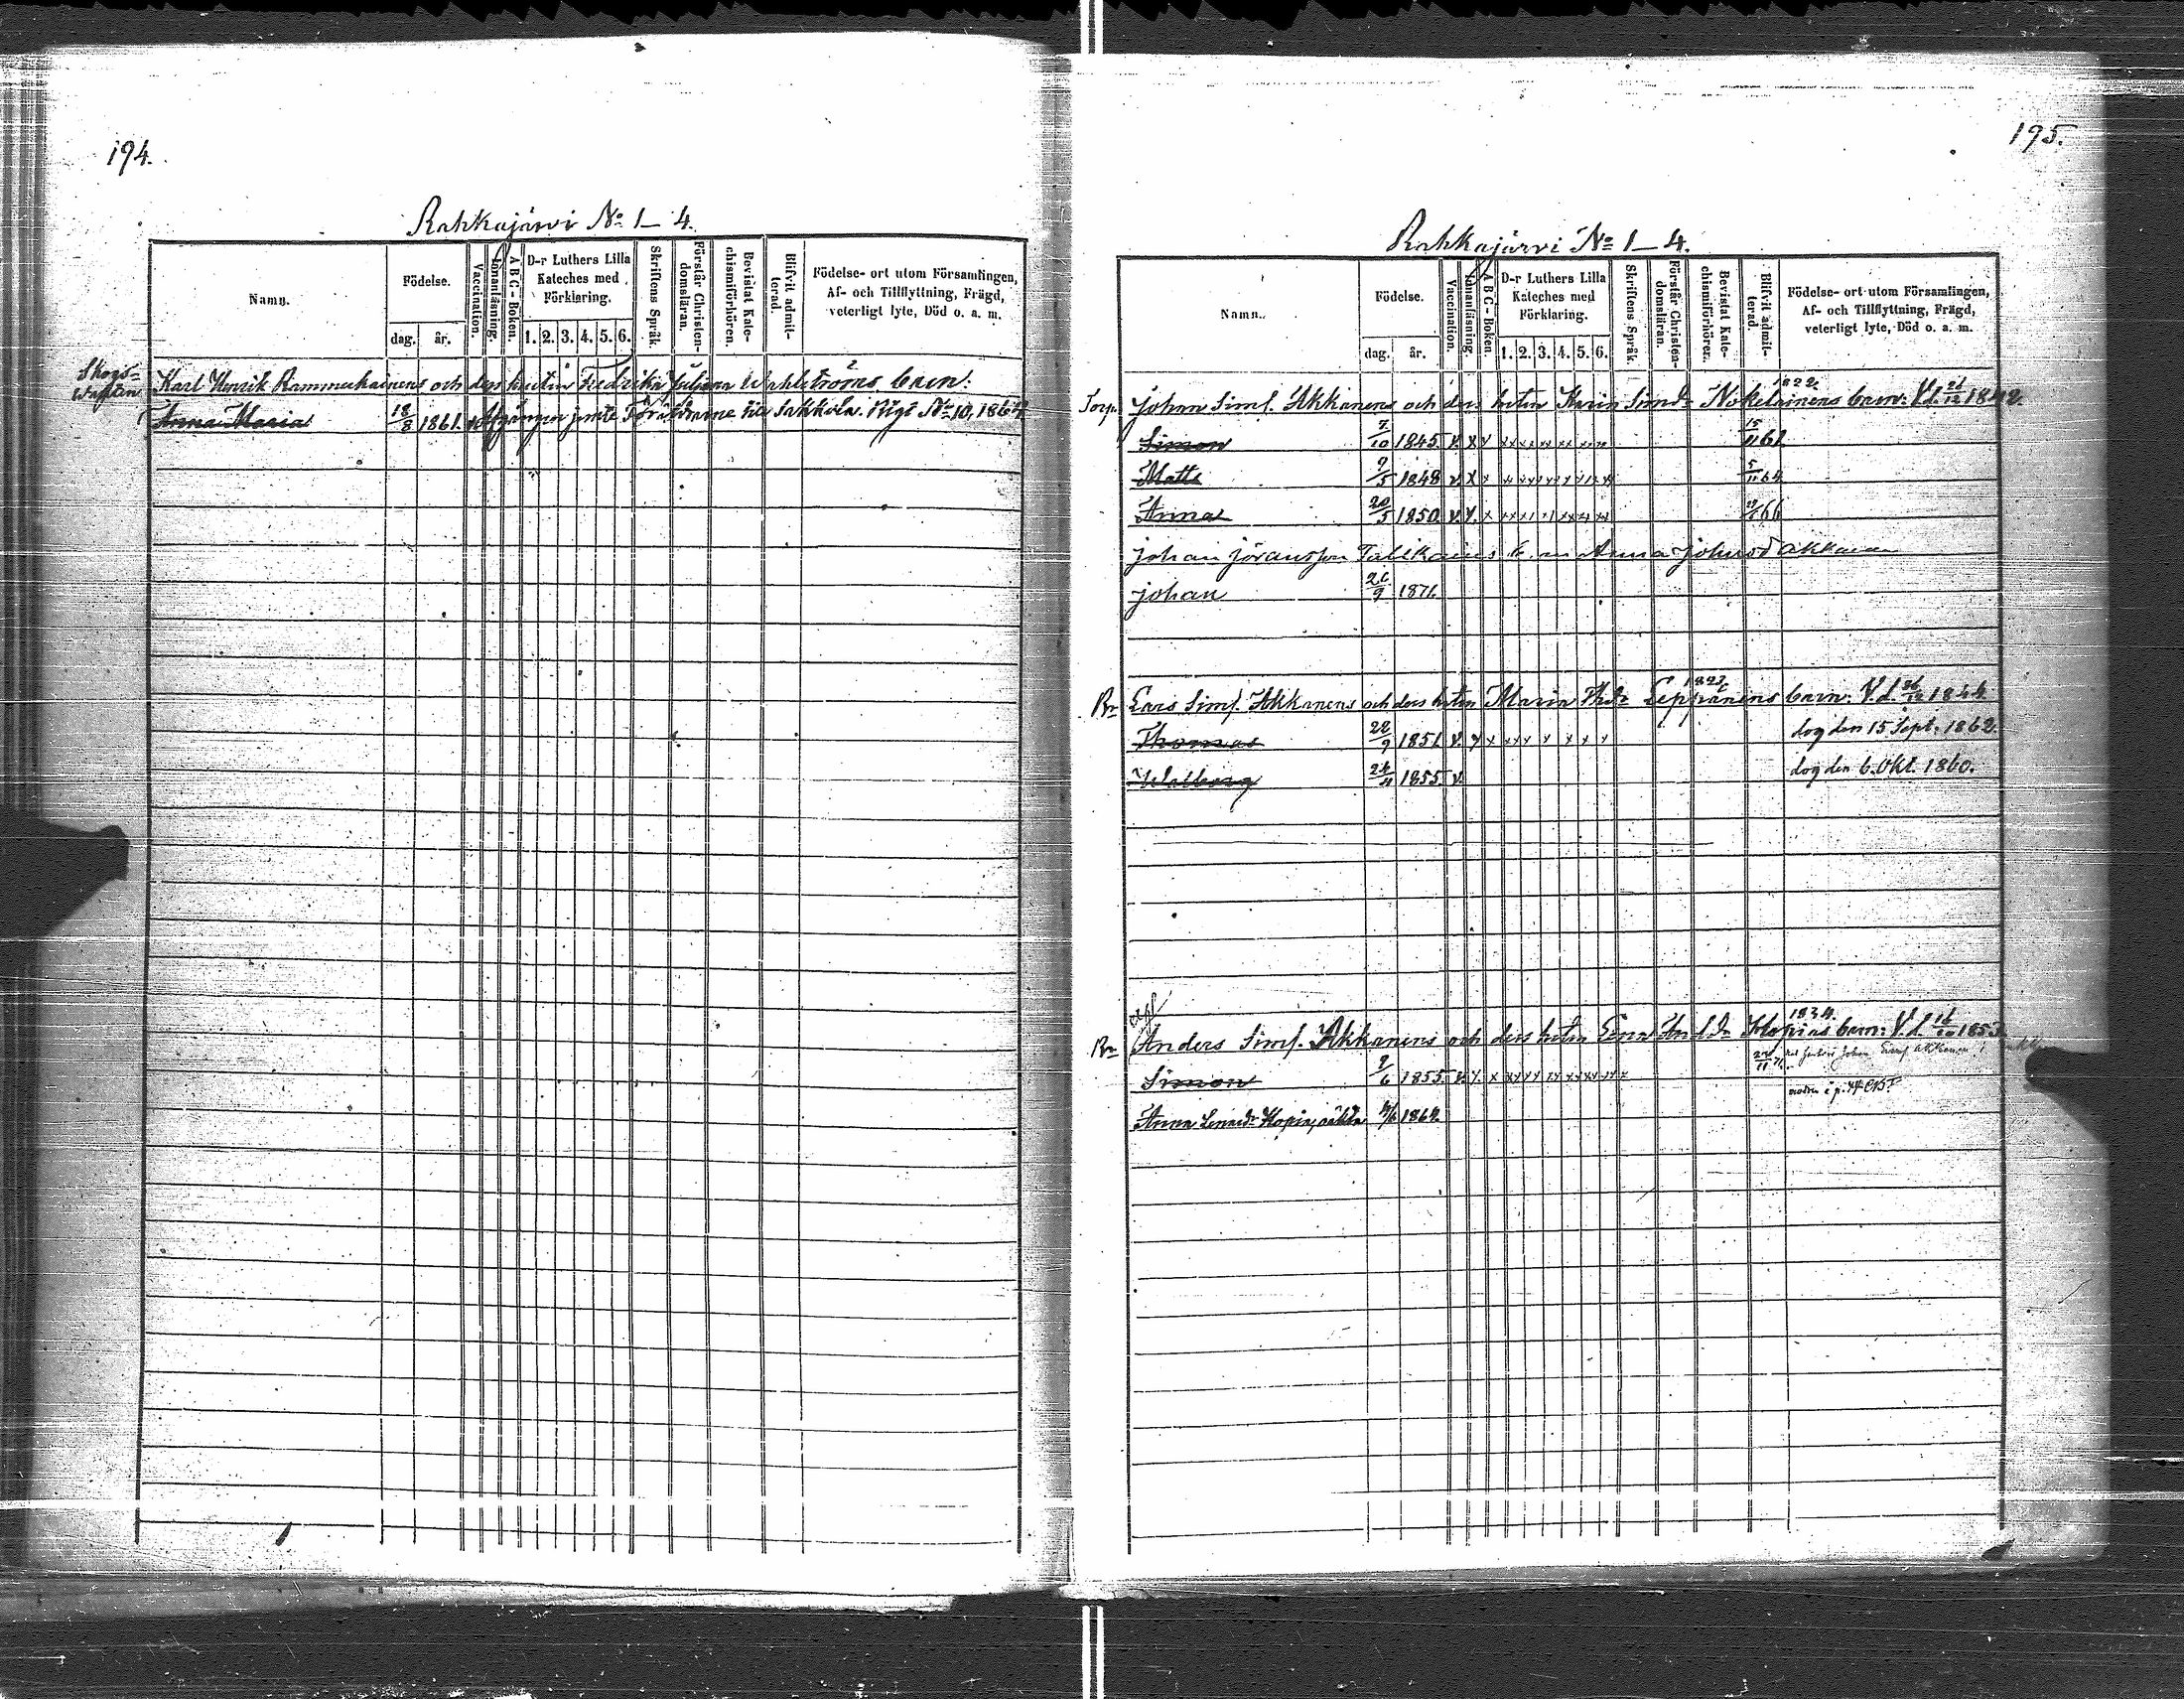 194.
Rahkajärvi No 1–4.
Namn.
Födelse.
dag.
år.
Vaccination.
Innanläsning.
A B C - Boken.
D-r Luthers Lilla
Kateches med
Förklaring.
1. 2. 3. 4. 5. 6.
Skriftens Språk.
Förstår Christen-
domsläran.
Bevistat Kate-
chismiförhören.
Blifvit admit-
terad.
Födelse- ort utom Församlingen,
Af- och Tillflyttning, Frägd,
veterligt lyte, Död o. a. m.
Skogs-
Karl Henrik och dess hustru Fredrika Juliana Wahlströms barn:
Anna Maria 18/8 1861. v Afgången jemte Föräldrarne till Sakkola. No 10, 1864
195.
Rahkajärvi No 1–4.
Namn.
Födelse.
dag.
år.
Vaccination.
Innanläsning.
A B C - Boken.
D-r Luthers Lilla
Kateches med
Förklaring.
1. 2. 3. 4. 5. 6.
Skriftens Språk.
Förstår Christen-
domsläran.
Bevistat Kate-
chismiförhörer.
Blifvit admit-
terad.
Födelse- ort utom Församlingen,
Af- och Tillflyttning, Frägd,
veterligt lyte, Död o. a. m.
1822
Torp. Johan Simss. Akkanens och dess hustru Karin Simsdr Nokelainens barn: V.d. 21/12 1842.
Simon 7/10 1845 v. x x 15/11 61
Matts 9/5 1848 v. x x 5/11 64
Anna 20/5 1850 v. x. x 66
Johan Göransson Anna Johansd Akkanen
Johan 26/9 1871.
1823
Br Lars Simss. Akkanens och dess hustru Maria Leppänens barn: V.d. 26/12 1844
Thomas 22/9 1851 v. x x dog den 15 Sept. 1862.
Walborg 24/11 1855 v. dog den 6. Okt. 1860.
1834.
Br Anders Simss. Akkanens och dess hustru Anna Andsdr Hopias barn: V.d. 1853
Simon 9/6 1855 v. x. x Johan Simss Akkanen
Anna Hopia, oäkta 1864